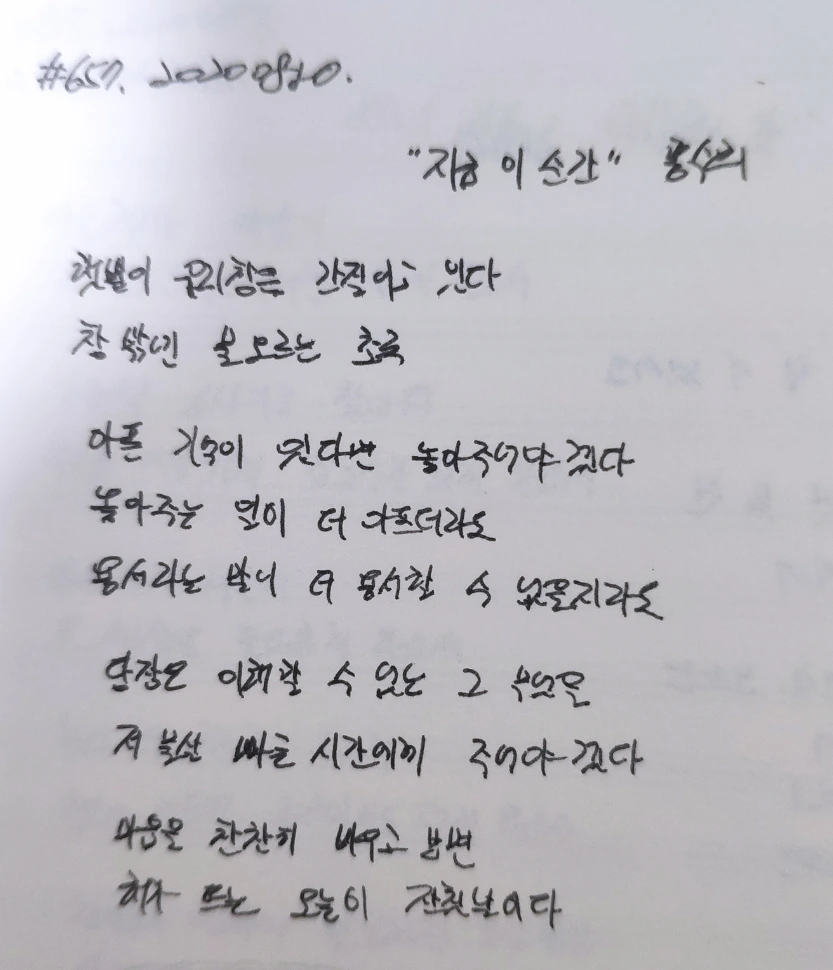 #657. 20200820.
"지금 이 순간" 홍수희
햇볕이 유리창을 간질이고 있다
창 밖엔 물오르는 초록
아픈 기억이 있다면 놓아주어야겠다
놓아주는 일이 더 아프더라도
용서라는 말이 더 용서할 수 없을지라도
당장은 이해할 수 없는 그 무엇을
저 불산 빠른 시간에게 주어야겠다
마음을 찬찬히 비우고 보면
해가 뜨는 오늘이 잔칫날이다